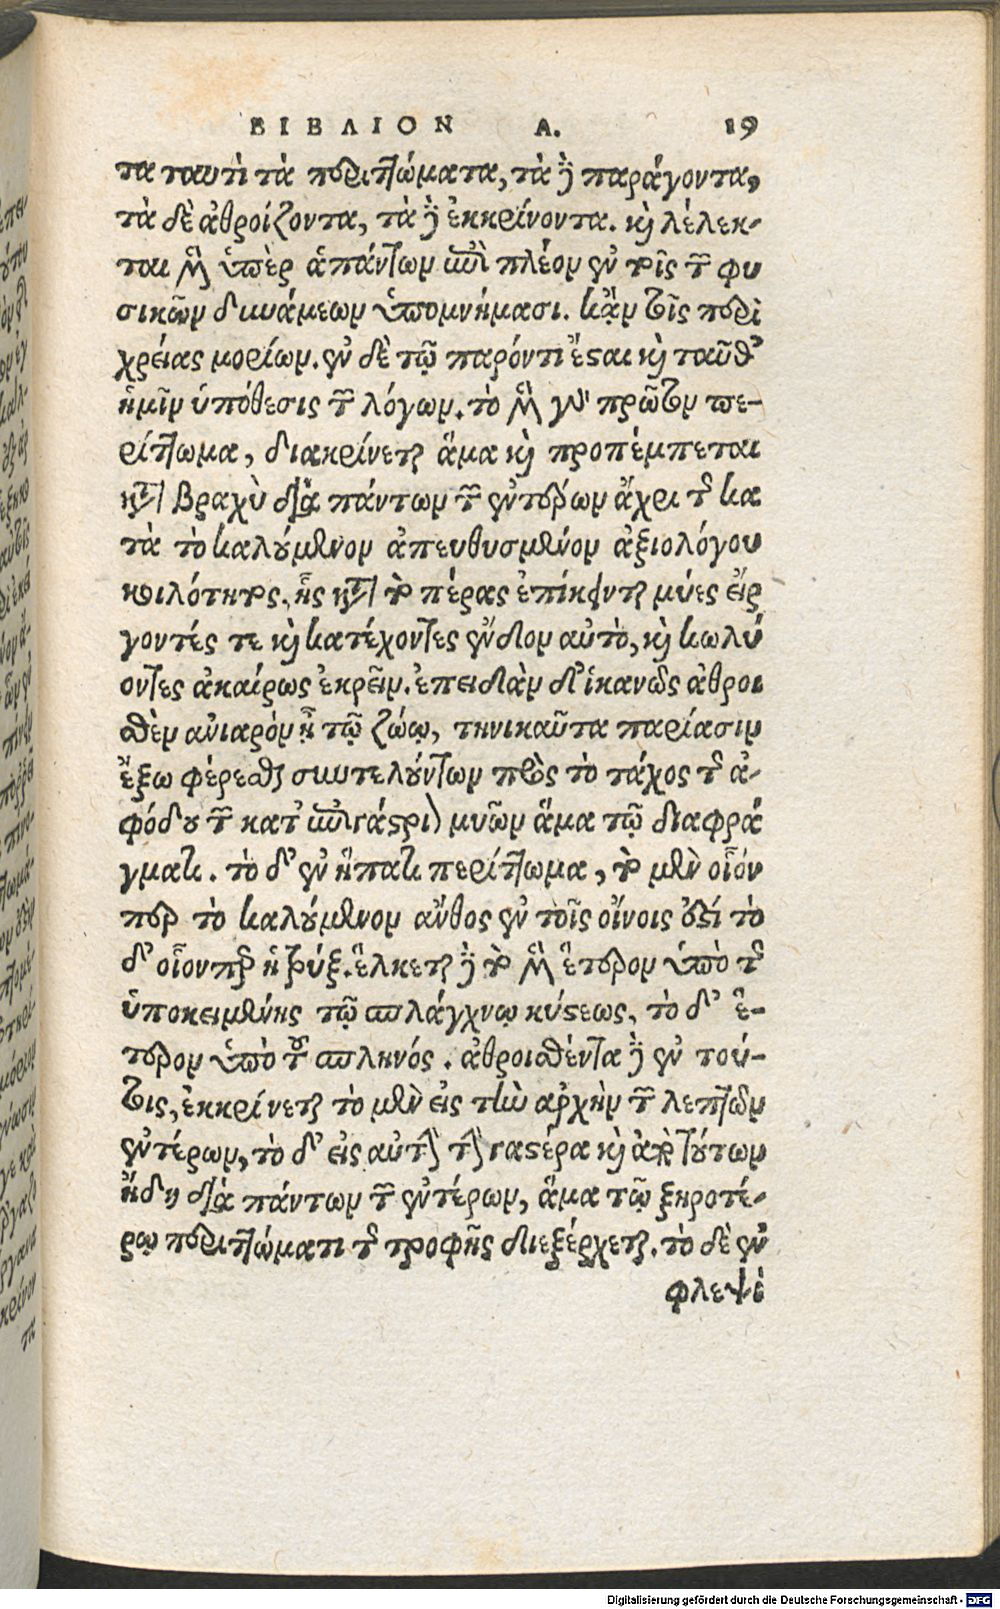 ΒΙΒΛΙΟΝ Α. 19
τα ταυτὶ τὰ περιττώματα, τὰ δὲ παράγοντα,
τὰ δὲ ἀθροίζοντα, τὰ δὲ ἐκκρίνοντα. καὶ λέλεκ-
ται μὲν ὑπὲρ ἁπάντων ἐπὶ πλέον ἐν τοῖς τῶν φυ
σικῶν δυνάμεων ὑπομνήμασι. κἂν τοῖς περὶ
χρείας μορίων. ἐν δὲ τῷ παρόντι ἔσται καὶ ταῦθ’
ἡμῖν ὑπόθεσις τῶν λόγων. τὸ μὲν γὰρ πρῶτον πε-
ρίττωμα, διακρίνεται ἅμα καὶ προπέμπεται
κατὰ βραχὺ διὰ πάντων τῶν ἐντέρων ἄχρι τῆς κα
τὰ τὸ καλούμενον ἀπευθυσμένον ἀξιολόγου
κοιλότητος, ἧς κατὰ τὸ πέρας ἐπίκεινται μύες εἴρ
γοντές τε καὶ κατέχοντες ἔνδον αὐτὸ, καὶ κωλύ
οντες ἀκαίρως ἐκρεῖν. ἐπειδὰν δ’ ἱκανῶς ἀθροι
σθὲν ἀνιαρὸν ᾖ τῷ ζώῳ, τηνικαῦτα παρίασιν
ἔξω φέρεσθαι συντελούντων πρὸς τὸ τάχος τῆς ἀ-
φόδου τῶν κατ’ ἐπιγάστριον μυῶν ἅμα τῷ διαφρά
γματι. τὸ δ’ ἐν ἥπατι περίττωμα, τὸ μὲν οἷόν
περ τὸ καλούμενον ἄνθος ἐν τοῖς οἴνοις ἐστί τὸ
δ’ οἷονπερ ἡ τρύξ. ἕλκεται δὲ τὸ μὲν ἕτερον ὑπὸ τῆς
ὑποκειμένης τῷ σπλάγχνῳ κύστεως, τὸ δ’ ἕ-
τερον ὑπὸ τοῦ σπληνός. ἀθροισθέντα δὲ ἐν τού-
τοις, ἐκκρίνεται τὸ μὲν εἰς τὴν ἀρχὴν τῶν λεπτῶν
ἐντέρων, τὸ δ’ εἰς αὐτὴν τὴν γαστέρα καὶ ἀπὸ τούτων
ἤδη διὰ πάντων τῶν ἐντέρων, ἅμα τῷ ξηροτέ-
ρῳ περιττώματι τῆς τροφῆς διεξέρχεται. τὸ δὲ ἐν
φλεψὶ
Digitalisierung gefördert durch die Deutsche Forschungsgemeinschaft - DFG